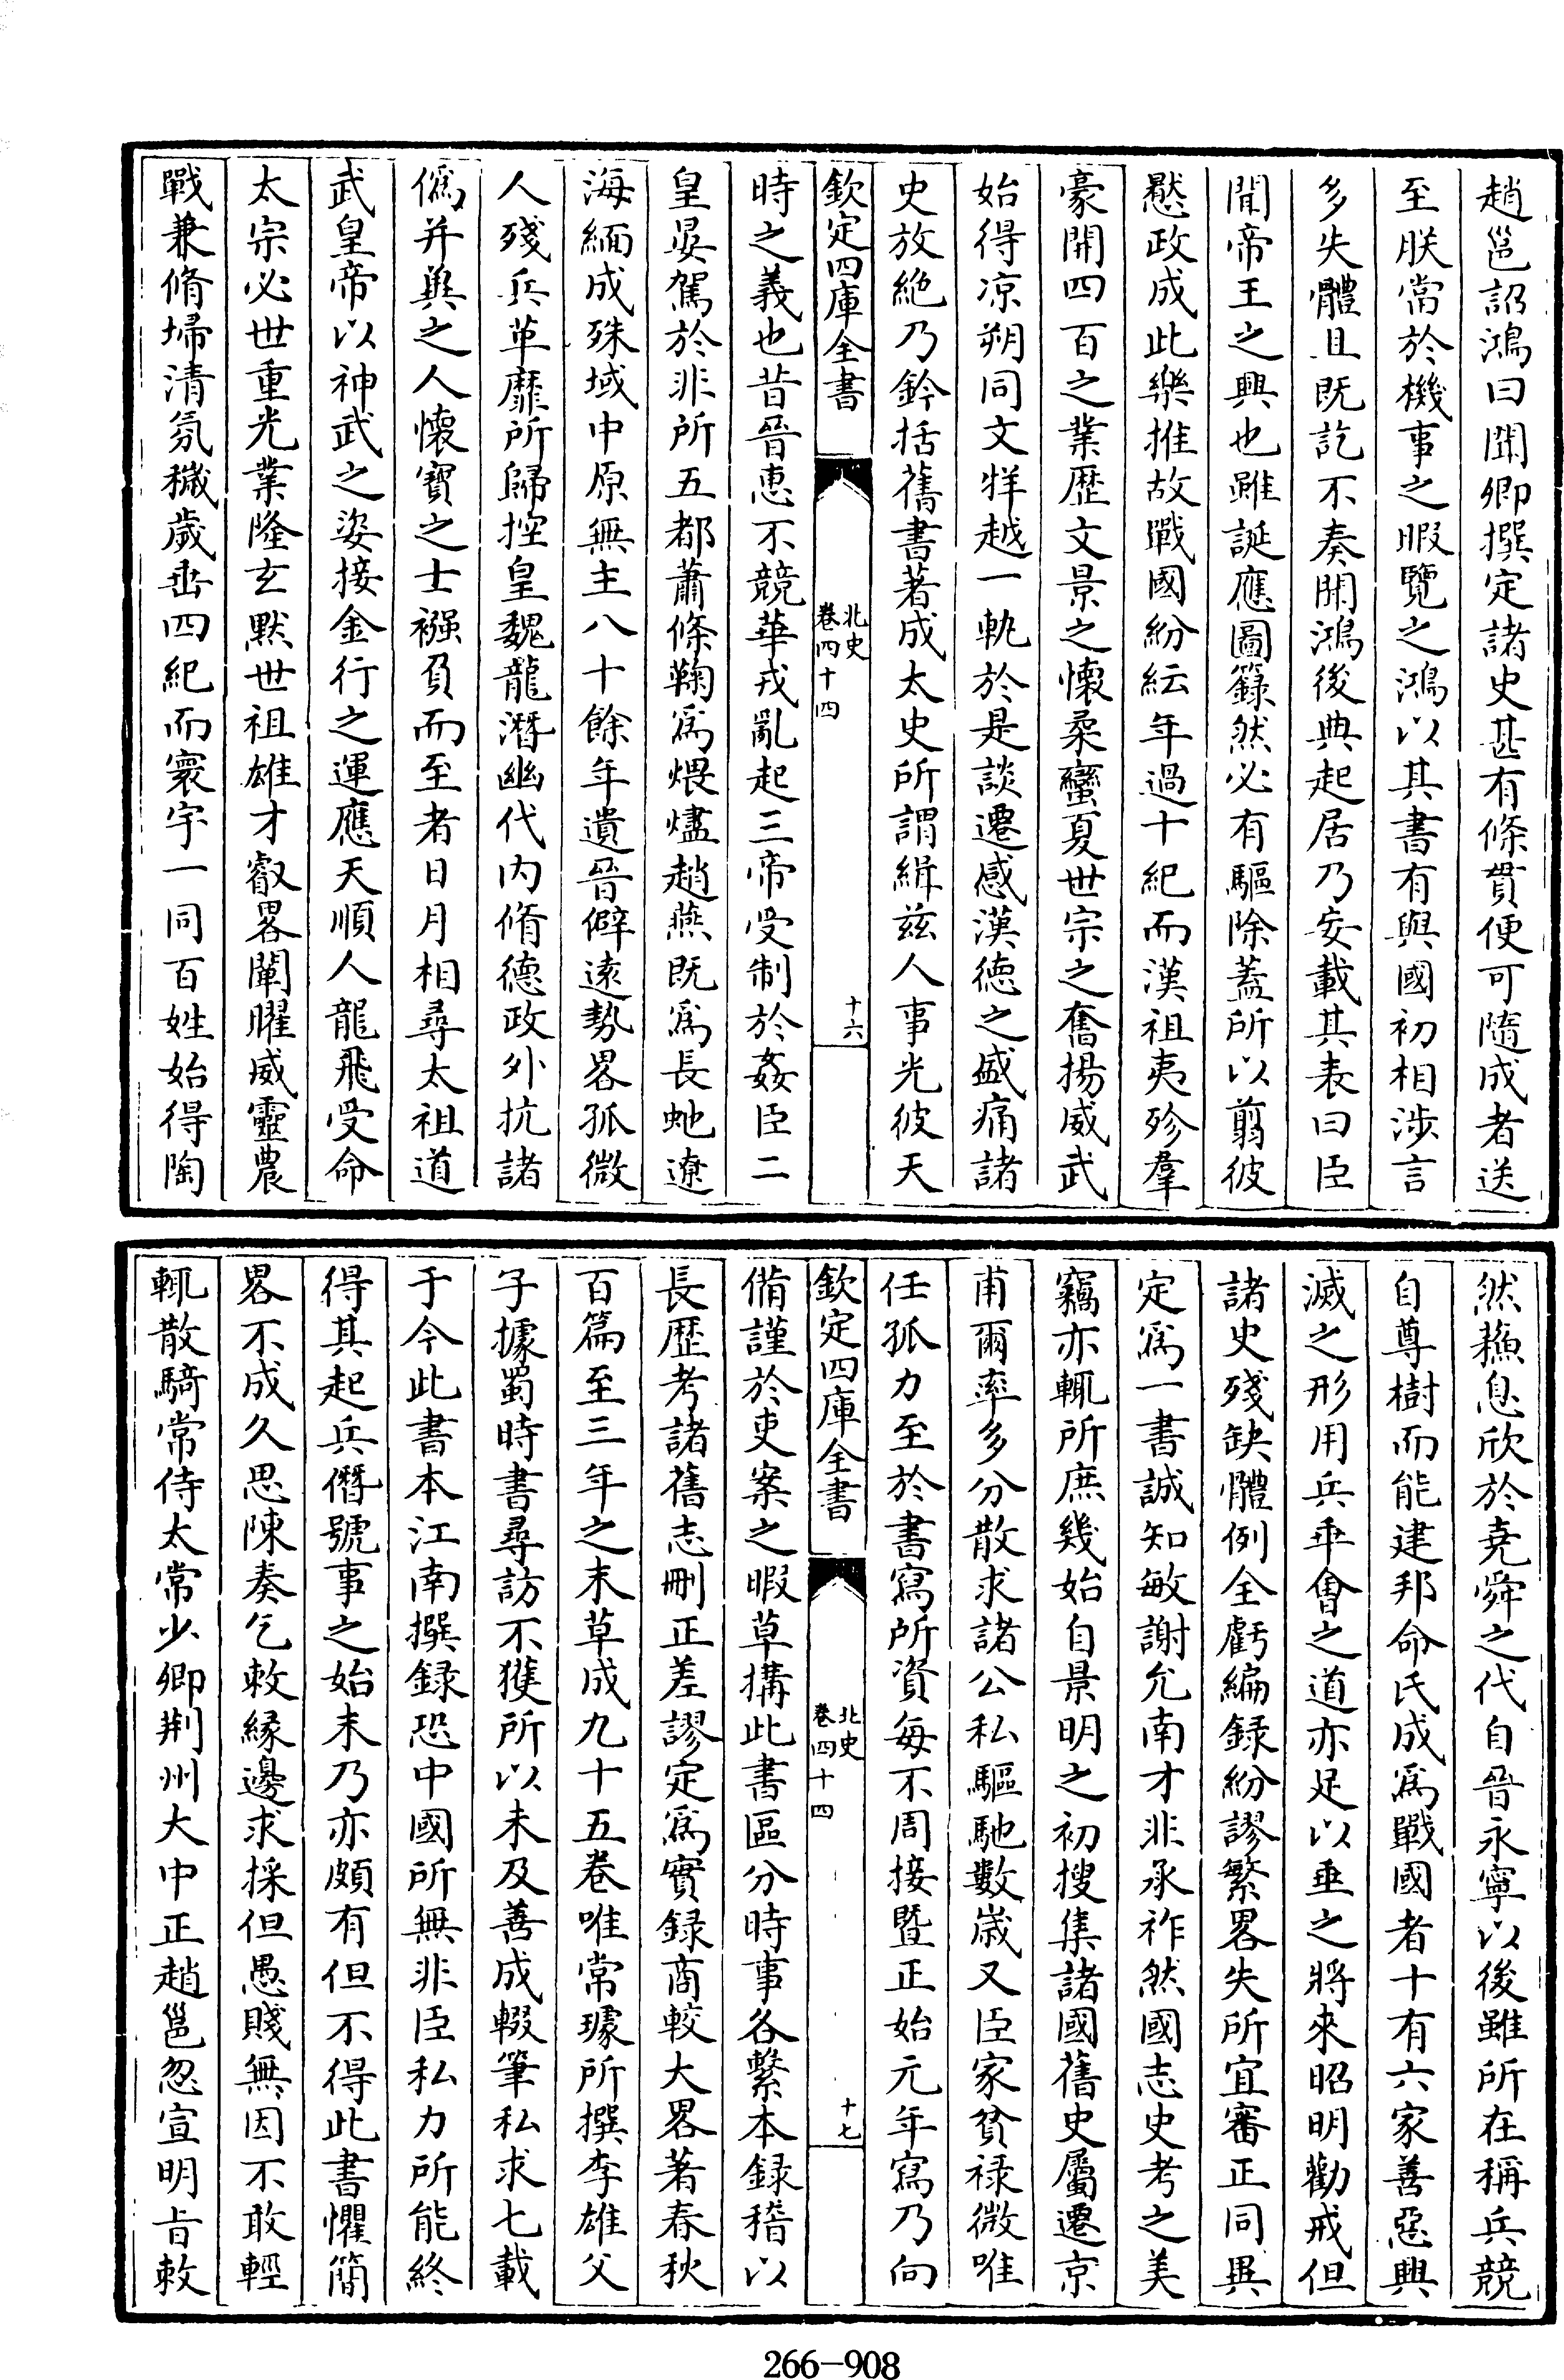 趙邕詔鴻曰聞卿撰定諸史甚有條貫便可隨成者送
至朕當於機事之暇覽之鴻以其書有與國初相涉言
多失體且既訖不奏聞鴻後典起居乃妄載其表曰臣
聞帝王之興也雖誕應圖籙然必有驅除蓋所以翦彼
慝政成此樂推故戰國紛紜年過十紀而漢祖夷殄羣
豪開四百之業歷文景之懷柔蠻夏世宗之奮揚威武
始得凉朔同文牂越一軌於是談遷感漢徳之盛痛諸
史放絶乃鈐括舊書著成太史所謂緝兹人事光彼天
欽定四庫全書
北史
卷四十四
十六
時之義也昔晉惠不競華戎亂起三帝受制於姦臣二
皇晏駕於非所五都蕭條鞠為煨燼趙燕既為長虵遼
海緬成殊域中原無主八十餘年遺晉僻逺勢畧孤微
人殘兵革靡所歸控皇魏龍潛幽代内脩德政外抗諸
偽并冀之人懷寶之士襁負而至者日月相尋太祖道
武皇帝以神武之姿接金行之運應天順人龍飛受命
太宗必世重光業隆玄默世祖雄才叡畧闡曜威靈農
戰兼脩埽清氛穢歲垂四紀而寰宇一同百姓始得陶
然蘓息欣於堯舜之代自晉永寧以後雖所在稱兵競
自尊樹而能建邦命氏成為戰國者十有六家善惡興
滅之形用兵乖會之道亦足以垂之將來昭明勸戒但
諸史殘缺體例全虧編録紛謬繁畧失所宜審正同異
定為一書誠知敏謝允南才非承祚然國志史考之美
竊亦輒所庶幾始自景明之初搜集諸國舊史屬遷京
甫爾率多分散求諸公私驅馳數歲又臣家貧禄微唯
任孤力至於書寫所資每不周接暨正始元年寫乃向
欽定四庫全書
北史
卷四十四
十七
備謹於吏案之暇草搆此書區分時事各繫本録稽以
長歴考諸舊志刪正差謬定為實録商較大畧著春秋
百篇至三年之末草成九十五卷唯常璩所撰李雄父
子據蜀時書尋訪不獲所以未及善成輟筆私求七載
于今此書本江南撰録恐中國所無非臣私力所能終
得其起兵僭號事之始末乃亦頗有但不得此書懼簡
畧不成久思陳奏乞敕緣邊求採但愚賤無因不敢輕
輒散騎常侍太常少卿荆州大中正趙邕忽宣明旨敕
266-908